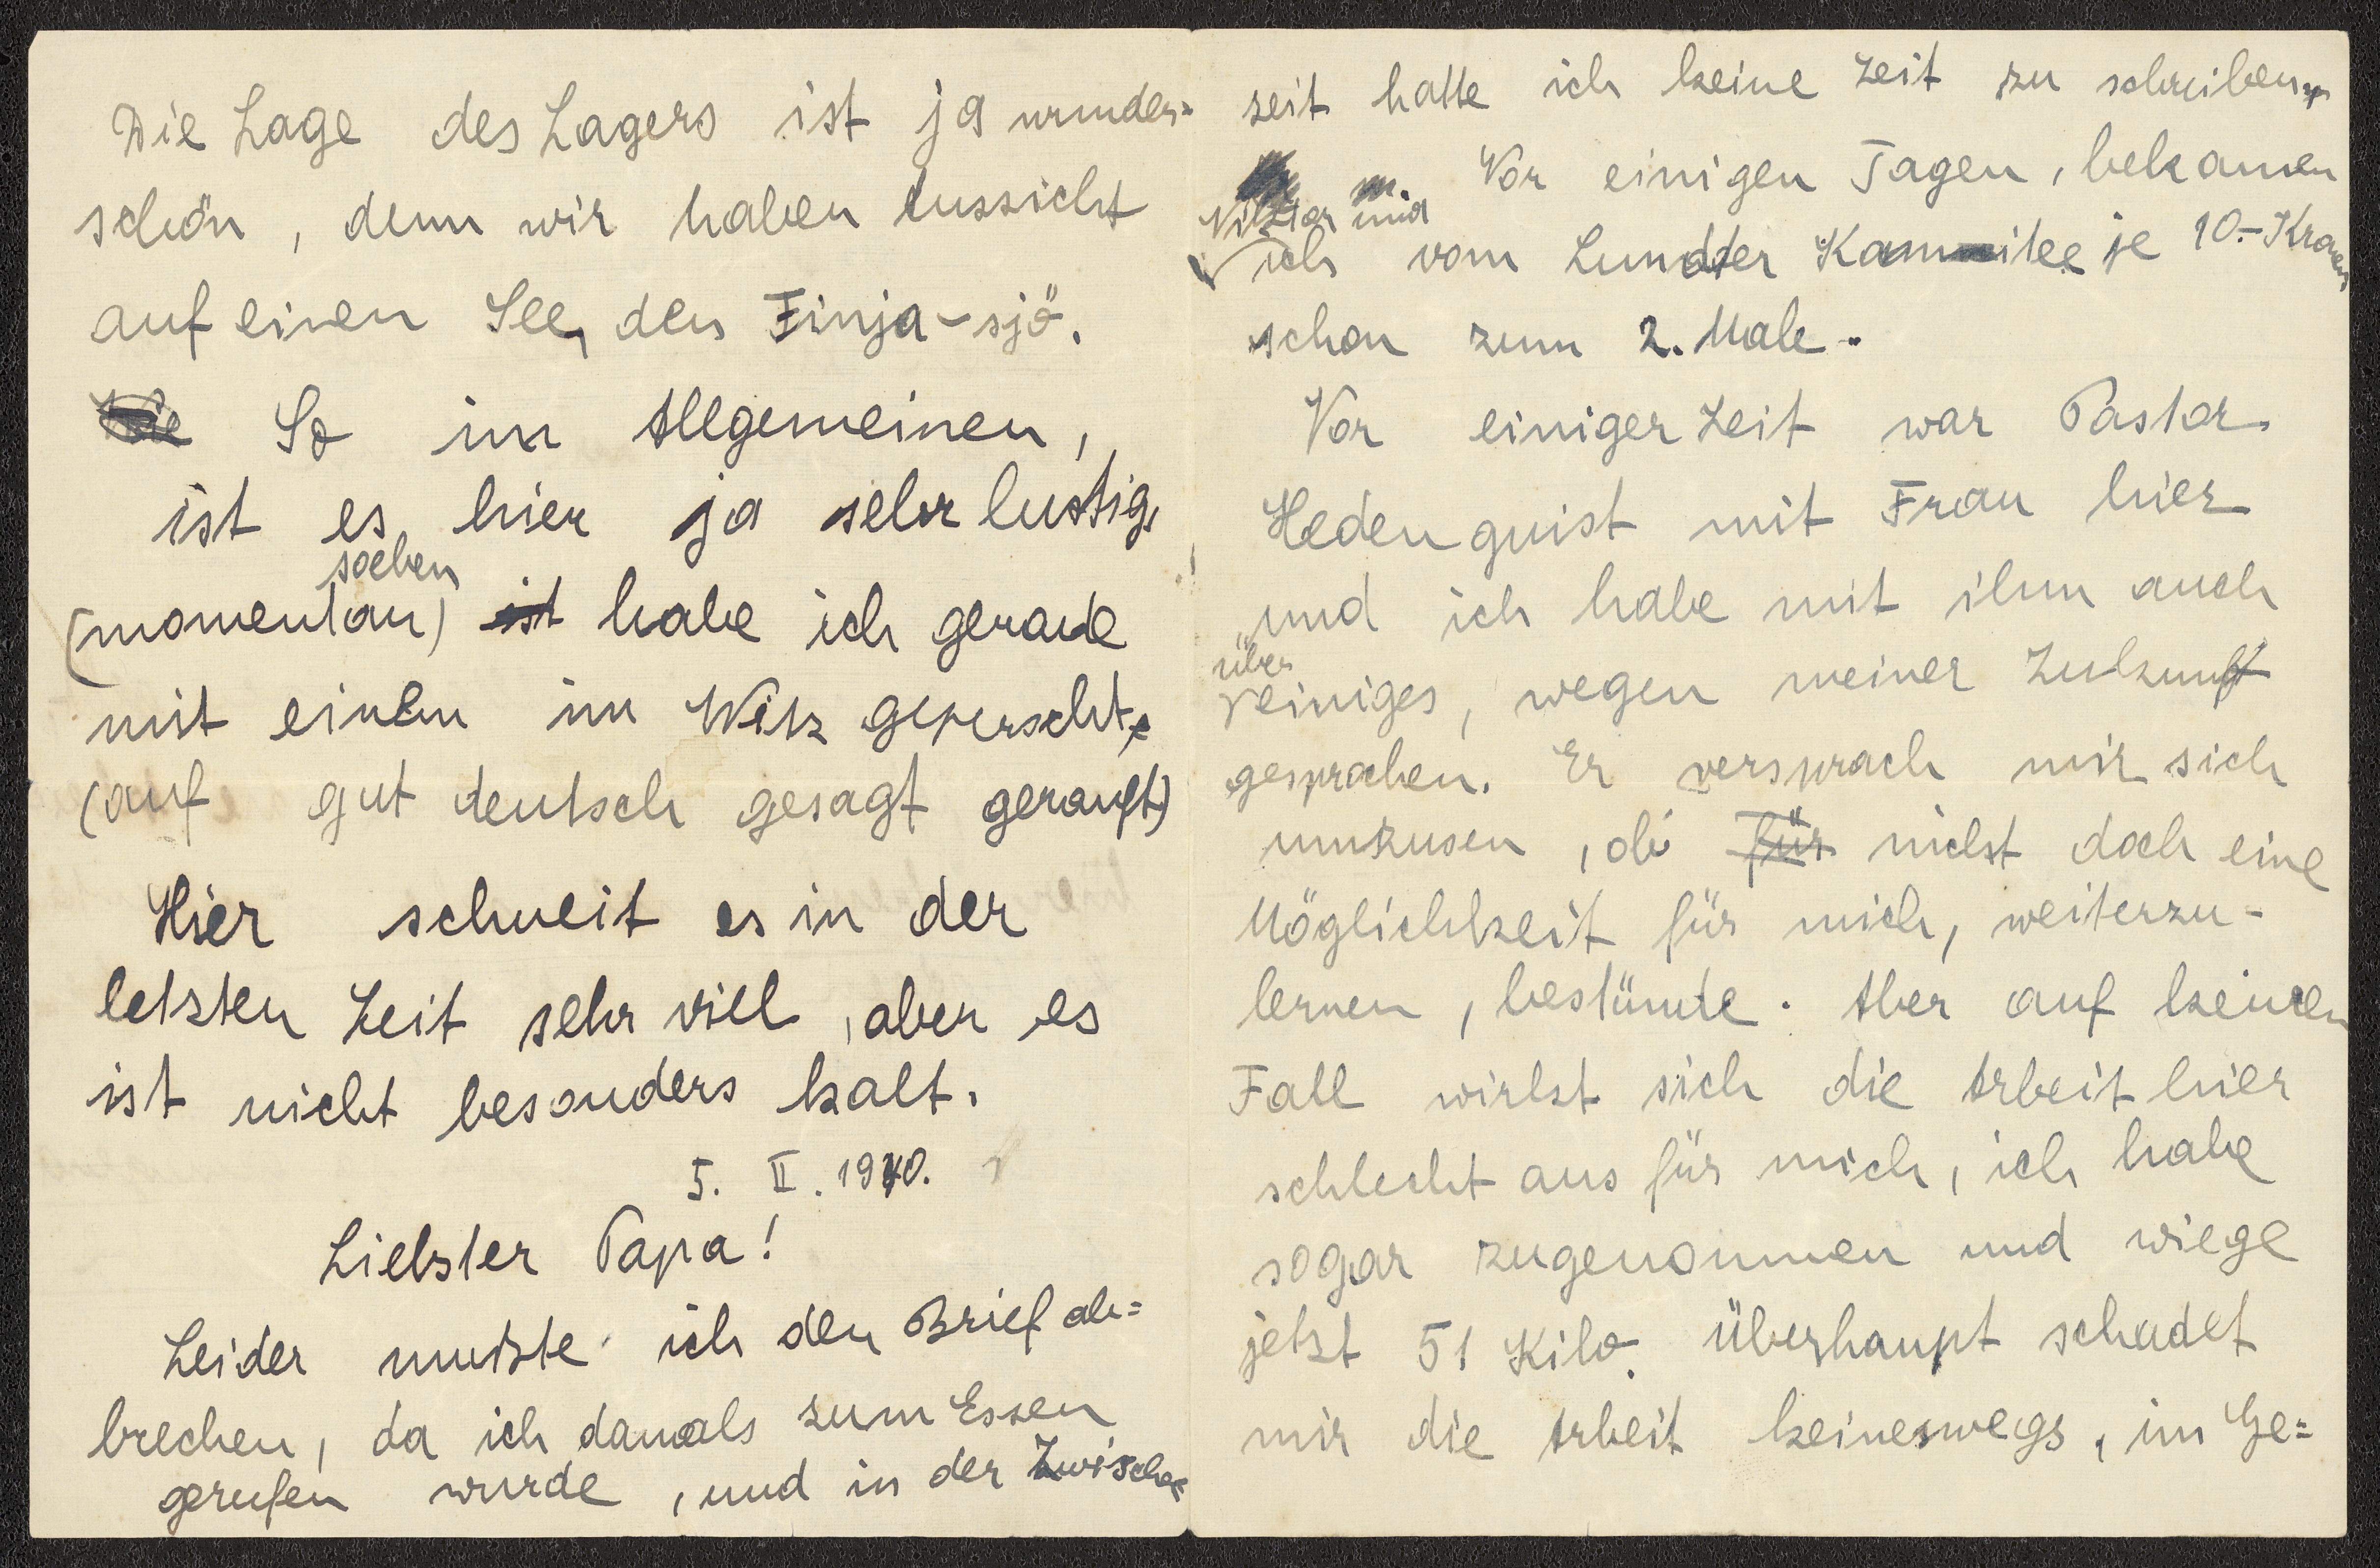 Die Lage des Lagers ist ja wunder=
schön, denn wir haben Aussicht
auf einen See, den Finja-sjö.
So im Allgemeinen,
ist es hier ja sehr lustig,
soeben
(momentan) ist habe ich gerade
mit einem im Witz gepurscht,
(auf gut deutsch gesagt gerauft)
Hier schneit es in der
letzten Zeit sehr viel, aber es
ist nicht besonders kalt.
5. II. 1940.
Liebster Papa!
Leider mußte ich den Brief ab=
brechen, da ich damals zum Essen
gerufen wurde, und in der Zwischen
zeit hatte ich keine Zeit zu schreiben.
Vor einigen Tagen, bekamen
Viktor und
ich vom Lundter Kommitee je 10.- Kronen
schon zum 2. Male.
Vor einiger Zeit war Pastor
Hedenquist mit Frau hier
und ich habe mit ihm auch
über
einiges, wegen meiner Zukunft
gesprochen. Er versprach mir sich
umzusen, ob für nicht doch eine
Möglichkeit für mich, weiterzu-
lernen, bestünde. Aber auf keinen
Fall wirkt sich die Arbeit hier
schlecht aus für mich, ich habe
sogar zugenommen und wiege
jetzt 51 Kilo. Überhaupt schadet
mir die Arbeit keineswegs, im Ge=